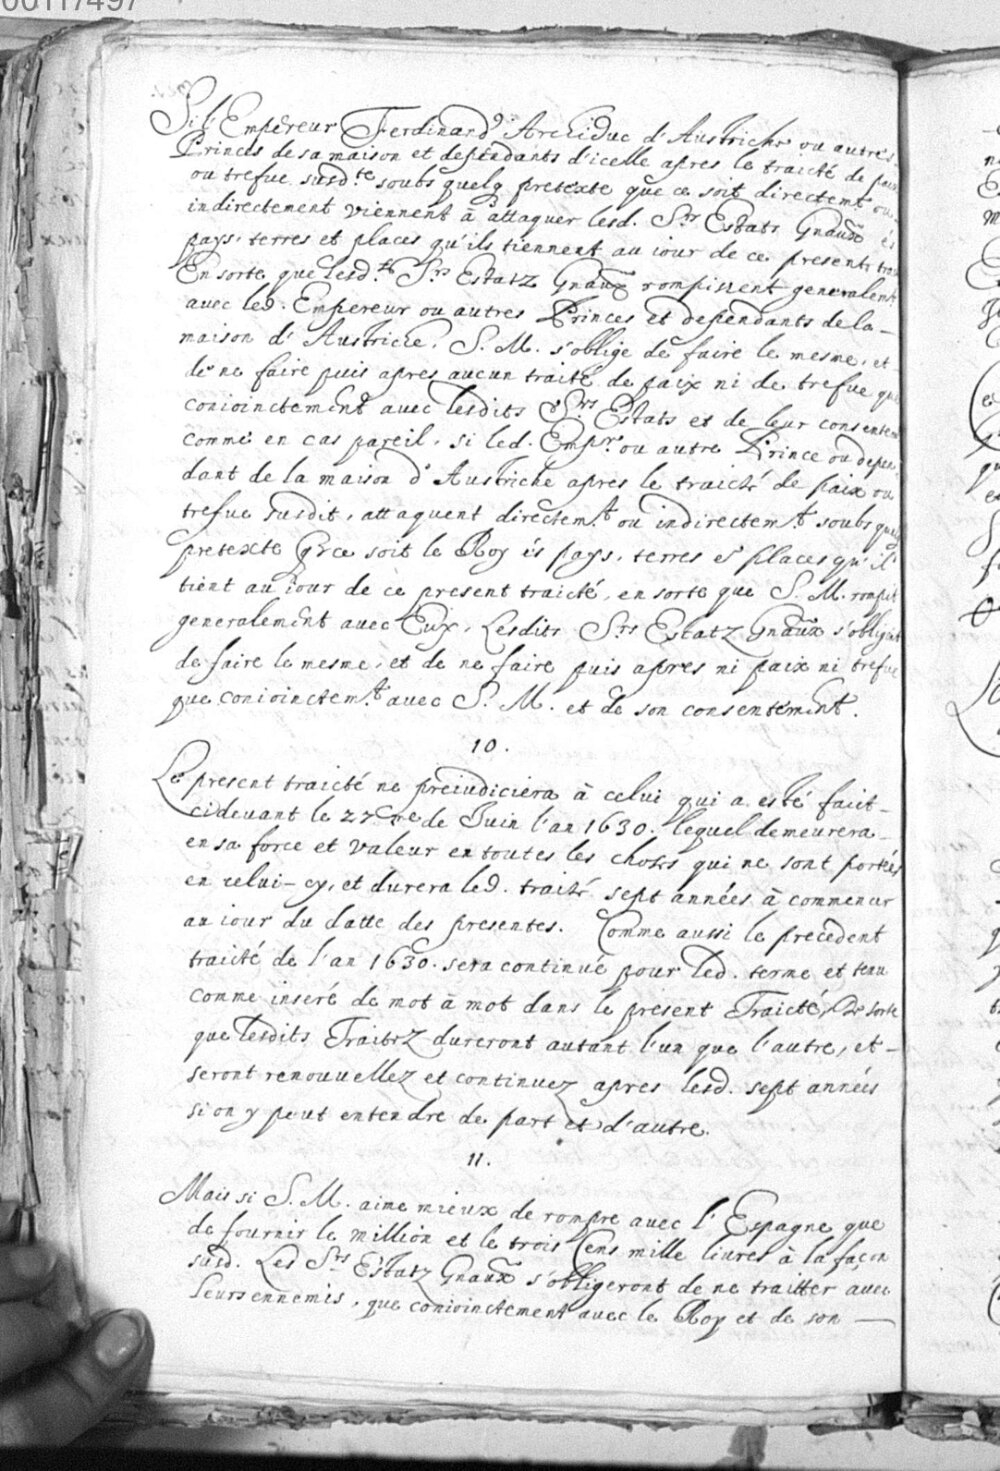 00117497
Si l'Empereur Ferdinand Archiduc d'Austriche ou autres
Princes de sa maison et dependants d'icelle apres le traicté de paix
ou trefue susd.te soubs quelq pretexte que ce soit directemt ou
indirectement viennent à attaquer lesd. Srs Estats Gnaux és
pays, terres et places qu'ils tiennent au iour de ce present trai
En sorte que lesd.ts Srs Estatz Gnaux rompissent generalemt
avec led. Empereur ou autres Princes et dependants de la-
maison d'Austriche. S. M. s'oblige de faire le mesme, et
de ne faire puis apres aucun traité de paix ni de trefue que
conioinctement avec lesdits Srs Estats et de leur consentem
comme en cas pareil, si led. Empr. ou autre Prince ou depen
dant de la maison d'Austriche apres le traicté de paix ou
trefue susdit, attaquent directem.t ou indirectem.t soubs quelq
pretexte q ce soit le Roy és pays, terres et places qu'il
tient au iour de ce present traicté, en sorte que S. M. rompit
generalement avec Eux, Lesdits Srs Estatz Gnaux s'obligent
de faire le mesme, et de ne faire puis apres ni paix ni trefue
que conioinctem.t avec S. M. et de son consentement.
10.
Le present traicté ne preiudiciera à celui qui a esté faict-
cideuant le 27 de Juin l'an 1630. lequel demeurera-
en sa force et valeur en toutes les choses qui ne sont portés
en celui-cy, et durera led. traité sept années à commencer
au iour du datte des presentes. Comme aussi le precedent
traicté de l'an 1630. sera continué pour led. terme et tenu
comme inseré de mot à mot dans le present Traicté, De sorte
que lesdits Traitez dureront autant l'un que l'autre, et-
seront renouuellez et continuez apres lesd. sept années
si on y peut entendre de part et d'autre.
11.
Mais si S. M. aime mieux de rompre avec l'Espagne que
de fournir le million et le trois Cens mille liures à la façon
susd. Les Srs Estatz Gnaux s'obligeront de ne traitter avec
Leurs ennemis, que conioinctement avec le Roy et de son —